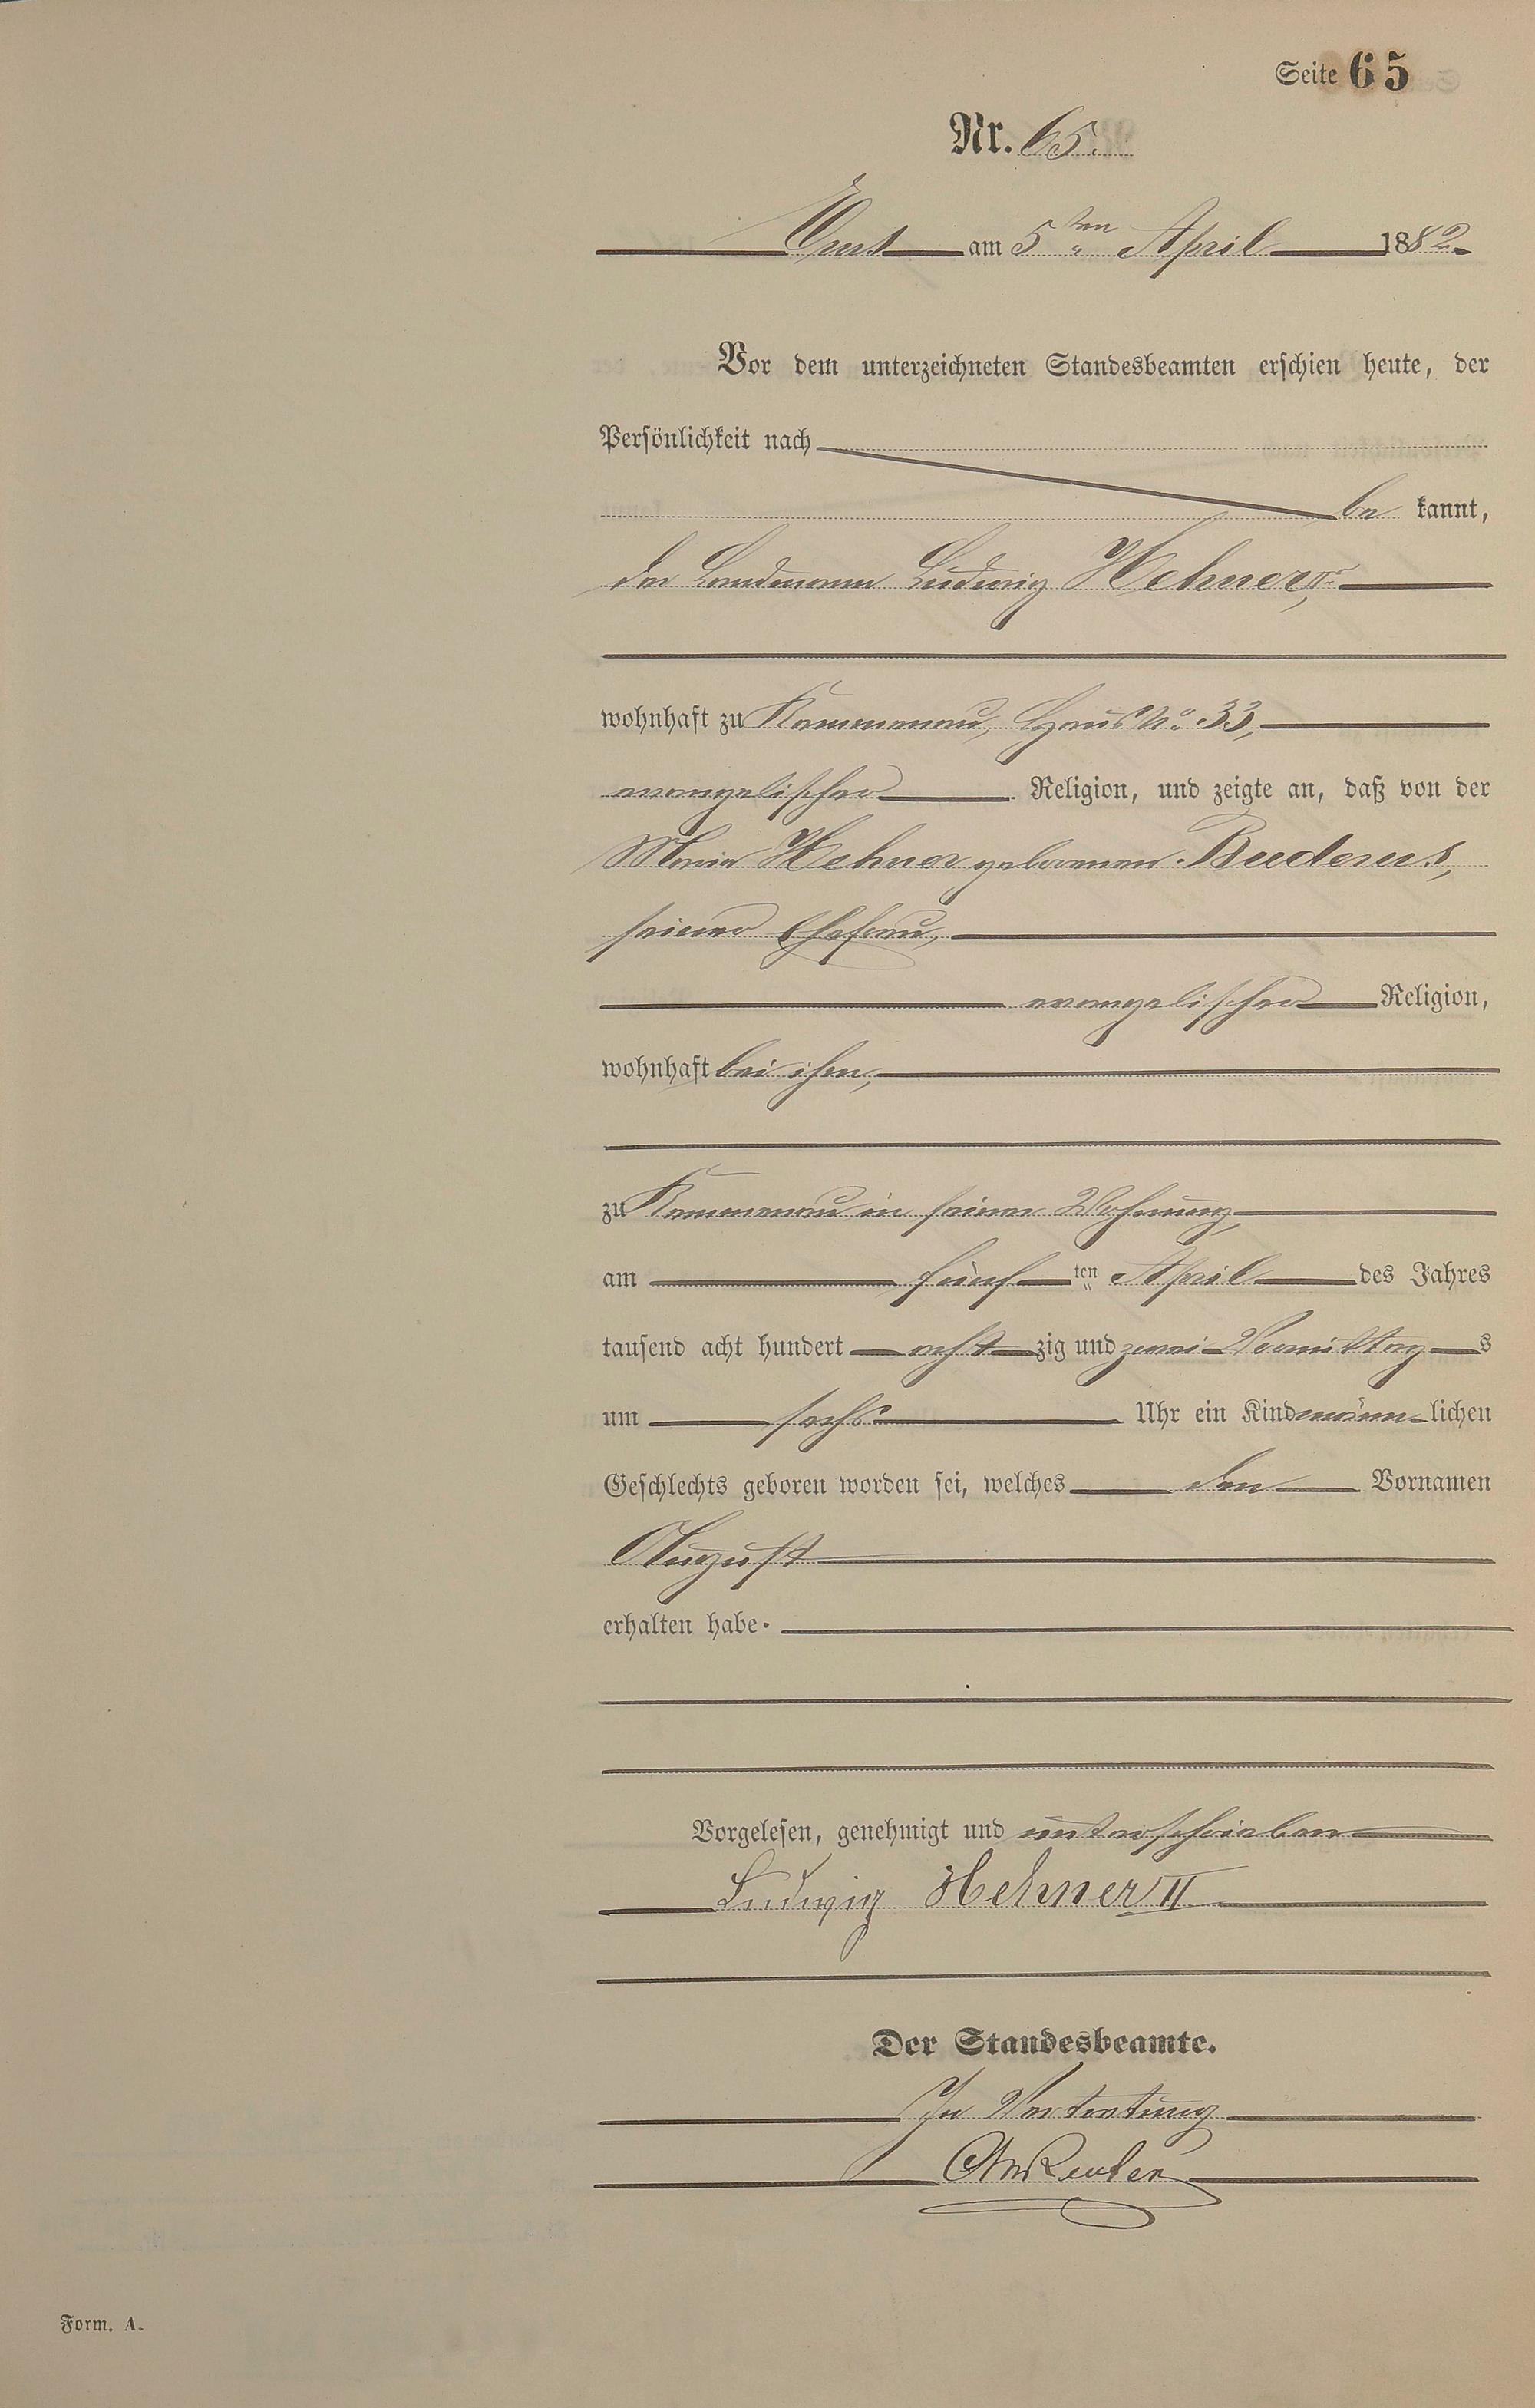 Seite 65
Nr. 65.
Ems am 5ten April 1882.
Vor dem unterzeichneten Standesbeamten erschien heute, der
Persönlichkeit nach
be kannt,
der Landmann Ludwig Hehner IIr,
wohnhaft zu Kemmenau, Haus No. 33,
evangelischer Religion, und zeigte an, daß von der
Maria Hehner geborenen Buderus,
seiner Ehefrau,
evangelischer Religion,
wohnhaft bei ihm,
zu Kemmenau in seiner Wohnung,
am fünf ten April des Jahres
tausend acht hundert acht zig und zwei Vormittag s
um sechs Uhr ein Kind männ lichen
Geschlechts geboren worden sei, welches den Vornamen
August
erhalten habe.
Vorgelesen, genehmigt und unterschrieben
Ludwig Hehner II
Der Standesbeamte.
In Vertretung
Form. A.